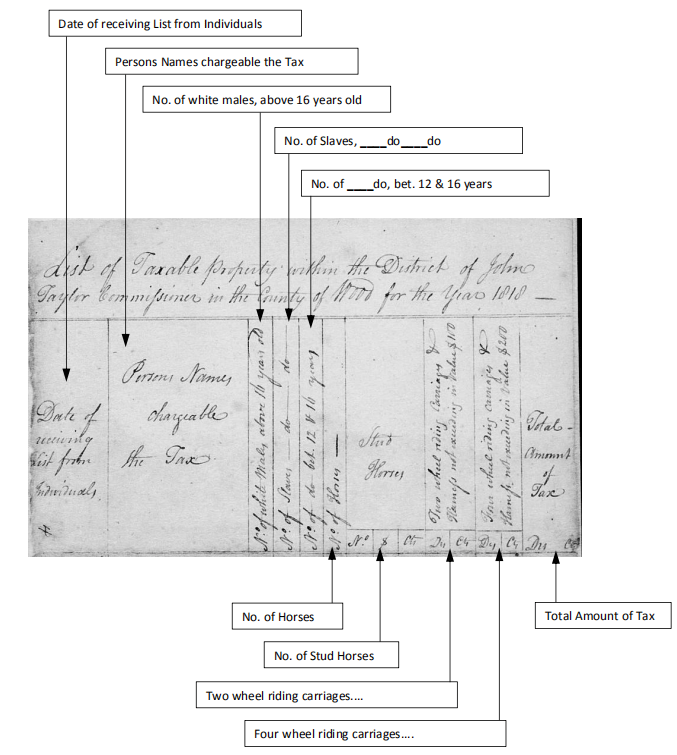 Date of receiving List from Individuals
Persons Names chargeable the Tax
No. of white males, above 16 years old
No. of Slaves, ____do____do
No. of ____do, bet. 12 & 16 years
List of Taxable property within the District of John
Taylor Commissioner in the County of Wood for the Year 1818 —
Date of
receiving
List from
Individuals
Persons Names
chargeable
the Tax
No. of white Males, above 16 years old
No. of Slaves — do — do
No. of do bet. 12 & 16 years
No. of Horses —
Stud
Horses
No. $ Cts
Two wheel riding Carriages &
Harness not exceeding in Value $100
Four wheel riding carriages &
Harness not exceeding in Value $200
Total
Amount
of
Tax
No. of Horses
No. of Stud Horses
Two wheel riding carriages....
Four wheel riding carriages....
Total Amount of Tax